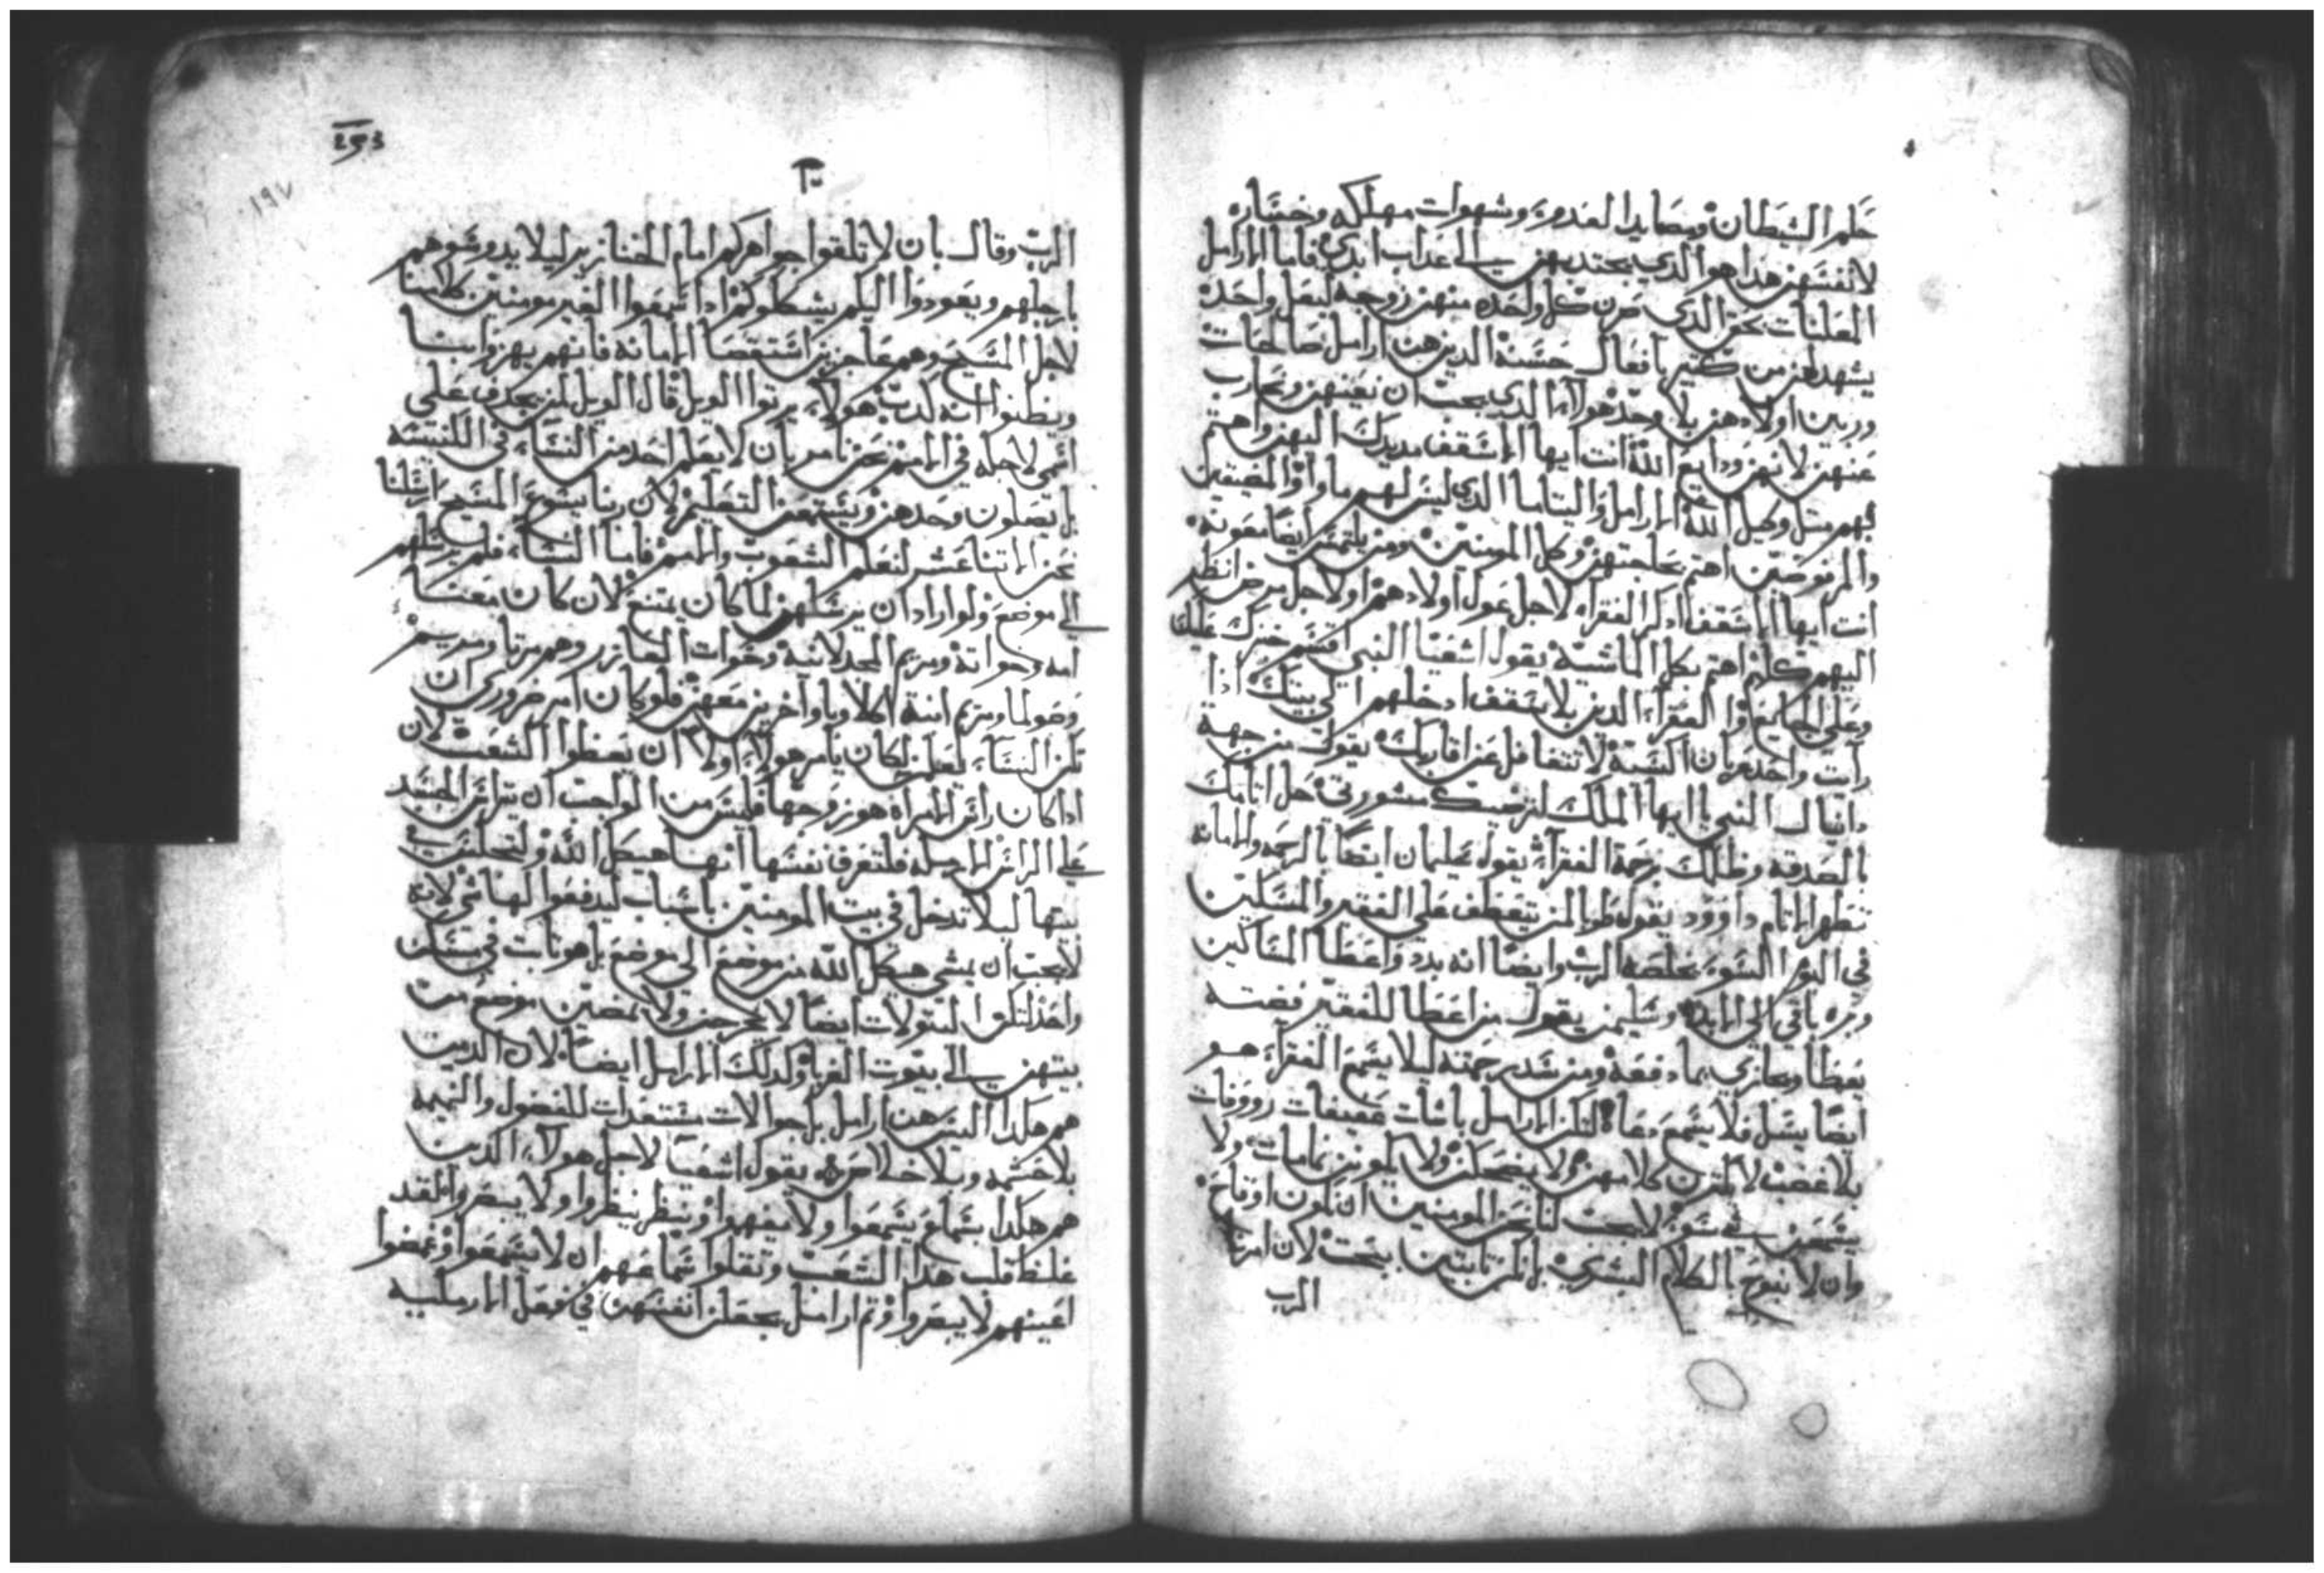 الشيطان ومصايد العدو وشهوات مهلكه وخساره
لانفسهن هذا هو الدي يجتدبهن الى عداب ابدي فاما الارامل
المعلنات بحق الدى كل واحده منهن زوجة ليعل واحد
يشهد لهن من كتير بافعال حسنة الدين هن ارامل صالحات
وربين اولادهن بلا هولاء الدي يجب ان نعينهن
عنهن لانهن ودايع الله انت ايها الاسقف مديدك اليهن واهتم
بهم متل وكيل الله الارامل واليتاما الدي ليس لهم ماوا والمضيقين
اهتم بحاجتهن وكل المومنين ومن يلتمس ايضا معونة
انت ايها الاسقف ادكر الفقراء لاجل عول اولادهم او لاجل مرض انظر
اليهم كلهم اهتم بكل الماشية يقول اشعيا النبي اقسم خبزك
وعلى الجايع والفقراء الدين بلا سقف ادخلهم الى بيتك ادا
رايت واحد عريان اكسه لا تتغافل عن اقاربك يقول من جهة
دانيال النبي يا ايها الملك مشورتي حل اتامك
بالصدقه وظلمك برحمة الفقراء يقول سليمان ايضا بالرحمه والامانه
تطهر الاتام داوود يقول طوبا لمن يتعطف على الفقير والمسكين
في اليوم السوء يخلصه الرب وايضا انه بدد واعطا المساكين
وبره باقي الى الابد وسليمن يقول من اعطا للفقير
بما دفعه ومن سد ليلا يسمع الفقراء هو
ايضا يسل فلا يسمع لتكن الارامل عفيفات رووفات
بلا غضب لا يكترن كلامهن ولا يضحكن ولا يكونن نمامات ولا
لا يجب لنا نحن المومنين ان نكون
وان لا نبوح بالكلام البشري بل نكن تابتين لان امرنا
الرب
253
١٩٧
الرب وقال بان لا تلقوا جواهركم امام الخنازير ليلا يدوسوهم
بارجلهم ويعودوا اليكم يشكلوكم ادا سمعوا الغير مومنين كلامنا
لاجل المسيح وهم عاجزين استقصا الامانه فانهم يهزوا بنا
ويظنوا انه كدب هولاء يرتوا الويل قال الويل لمن يجدف على
اسمي لاجله في الامم نحن نامر بان لا يعلم احد من النساء في الكنيسه
بل يصلون وحدهن ويستمعن التعليم لان ربنا يسوع المسيح ارسلنا
نحن الاتنا عشر لنعلم الشعوب والامم فاما النساء فلم يرسلهم
الى موضع ولو اراد ان يرسلهن لما كان يمتنع لان كان معنا
امه وخواته ومريم المجدلانية وخوات العازر وهم مرتا ومريم
وصولما ومريم امنة اكلاوبا واخرين معهن فلو كان امر ضروري ان
تكن النساء يعلمن لكان يامر هولاء اولا ان يعظوا الشعب لان
ادا كان راس الامراه هو زوجها فليس من الواجب ان يتراس الجسد
على الراس الارمله فلتعرف نفسها انها هيكل الله ولتجلس في
بيتها ليلا تدخل في بيت المومنين باسباب ليدفعوا لها شي لانه
لا يجب ان يمشي هيكل الله من موضع الى موضع بل هو تابت في مسكن
واحد لتكن البتولات ايضا لا يخرجن ولا يمضين موضع من
بيتهن الى بيوت الغربا وكدلك الارامل ايضا لان الدين
هم هكدا ليس هن ارامل بل جوالات مستعدات للفضول والنميمه
بلا حشمه وبلا خلاص يقول اشعيا لاجل هولاء الدين
هم هكدا بسماع يسمعوا ولا يفهموا وبنظر ينظروا ولا يبصروا لقد
غلظ قلب هدا الشعب وتقلوا سماعهم ان لا يسمعوا وغمضوا
اعينهم لا يبصروا وتم ارامل يجعلن انفسهن في فعل الارمليه